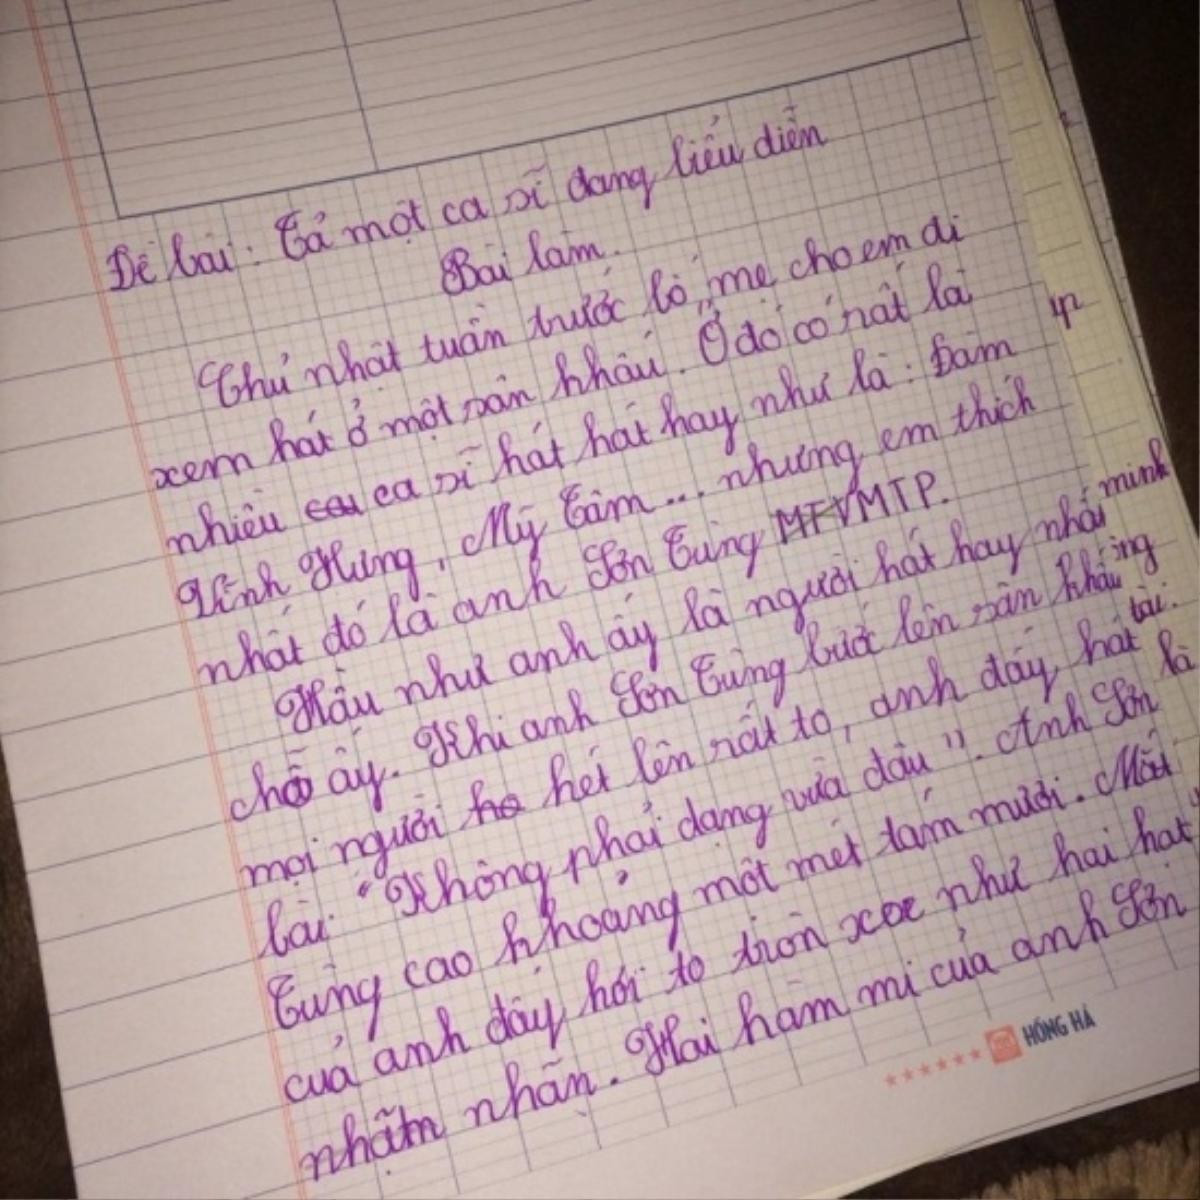 Đề bài: Tả một ca sĩ đang biểu diễn
Bài làm.
Chủ nhật tuần trước bố, mẹ cho em đi
xem hát ở một sân khấu. Ở đó có rất là
nhiều ca sĩ hát hát hay như là: Đàm
Vĩnh Hưng, Mỹ Tâm... nhưng em thích
nhất đó là anh Sơn Tùng MTP.
Hầu như anh ấy là người hát hay nhất
chỗ ấy. Khi anh Sơn Tùng bước lên sân khấu
mọi người hét lên rất to, anh đấy hát
bài "Không phải dạng vừa đâu". Anh Sơn
Tùng cao khoảng một mét tám mươi. Mắt
của anh đấy hơi to tròn xoe như hai hạt
nhãn. Hai hàm mi của anh Sơn
42
minh
ng
tài.
là
HỒNG HÀ